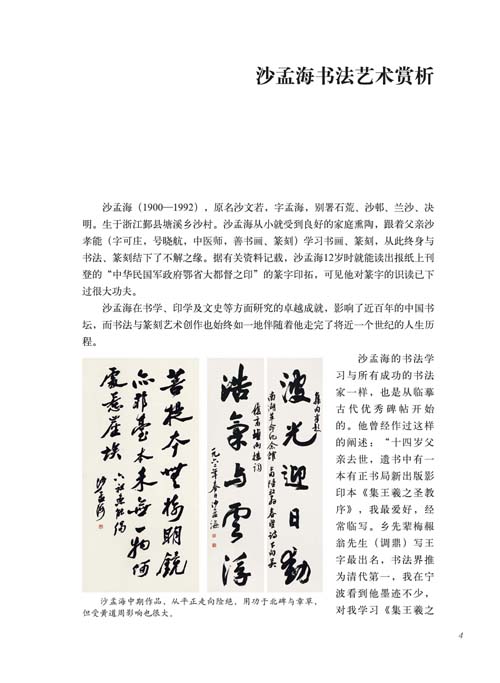 沙孟海书法艺术赏析
沙孟海（1900—1992），原名沙文若，字孟海，别署石荒、沙邨、兰沙、决
明。生于浙江鄞县塘溪乡沙村。沙孟海从小就受到良好的家庭熏陶，跟着父亲沙
孝能（字可庄，号晓航，中医师，善书画、篆刻）学习书画、篆刻，从此终身与
书法、篆刻结下了不解之缘。据有关资料记载，沙孟海12岁时就能读出报纸上刊
登的“中华民国军政府鄂省大都督之印”的篆字印拓，可见他对篆字的识读已下
过很大功夫。
沙孟海在书学、印学及文史等方面研究的卓越成就，影响了近百年的中国书
坛，而书法与篆刻艺术创作也始终如一地伴随着他走完了将近一个世纪的人生历
程。
菩提本無樹明鏡
亦非臺本来無一物何
處惹崖埃
六祖惠能偈
沙孟海
波光迎日動
浩氣与雲浮
一九六三年春日沙孟海
沙孟海中期作品，从平正走向险绝，用功于北碑与章草，
但受黄道周影响也很大。
沙孟海的书法学
习与所有成功的书法
家一样，也是从临摹
古代优秀碑帖开始
的。他曾经作过这样
的阐述：“十四岁父
亲去世，遗书中有一
本有正书局新出版影
印本《集王羲之圣教
序》，我最爱好，经
常临写。乡先辈梅赧
翁先生（调鼎）写王
字最出名，书法界推
为清代第一，我在宁
波看到他墨迹不少，
对我学习《集王羲之
4